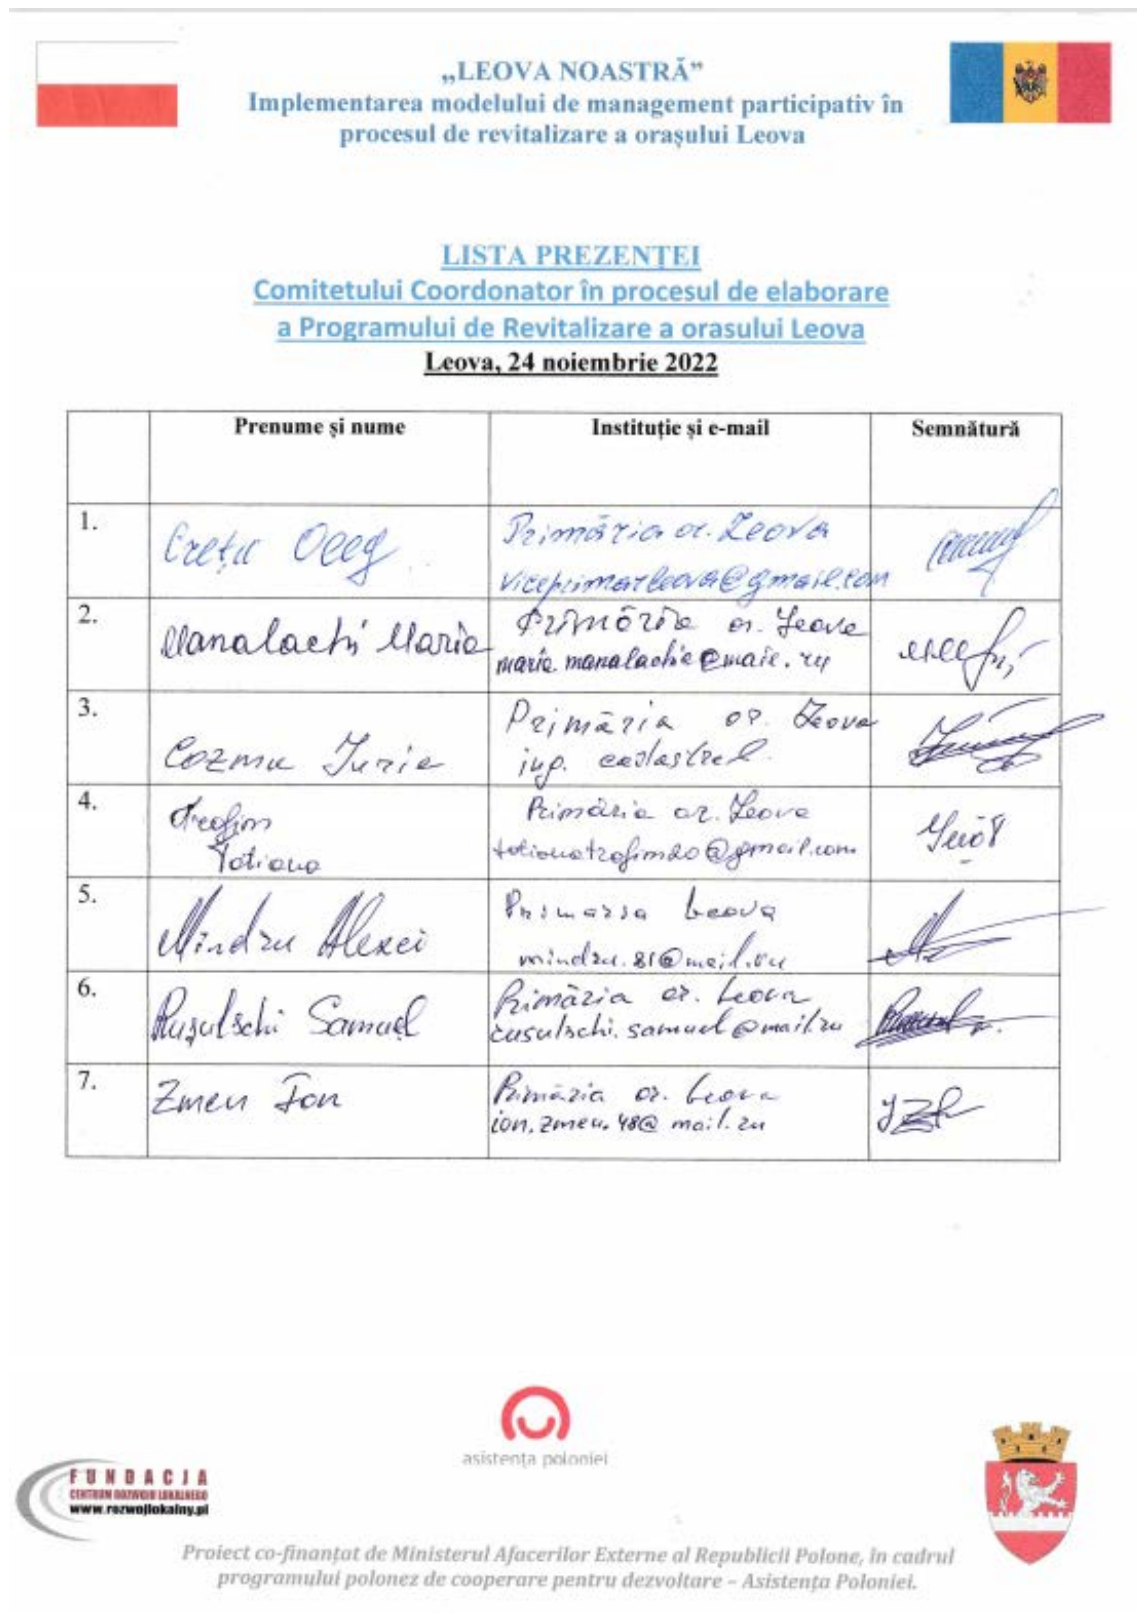 „LEOVA NOASTRĂ”
Implementarea modelului de management participativ în
procesul de revitalizare a orașului Leova
LISTA PREZENȚEI
Comitetului Coordonator în procesul de elaborare
a Programului de Revitalizare a orasului Leova
Leova, 24 noiembrie 2022
Prenume și nume
Instituție și e-mail
Semnătură
1.
Crețu Oleg
Primăria or. Leova
viceprimarleova@gmail.com
2.
Manalachi Maria
Primăria or. Leova
maria.manalachi@mail.ru
3.
Cozma Iurie
Primăria or. Leova
ing. cadastral
4.
Trofim
Tatiana
Primăria or. Leova
5.
Mindru Alexei
Primaria Leova
mindru.81@mail.ru
6.
Rușulschi Samuel
Primăria or. Leova
rusulschi.samuel@mail.ru
7.
Zmeu Ion
Primăria or. Leova
ion.zmeu.48@mail.ru
asistența poloniei
FUNDACJA
CENTRUM ROZWOJU LOKALNEGO
www.rozwojlokalny.pl
Proiect co-finanțat de Ministerul Afacerilor Externe al Republicii Polone, în cadrul
programului polonez de cooperare pentru dezvoltare – Asistența Poloniei.